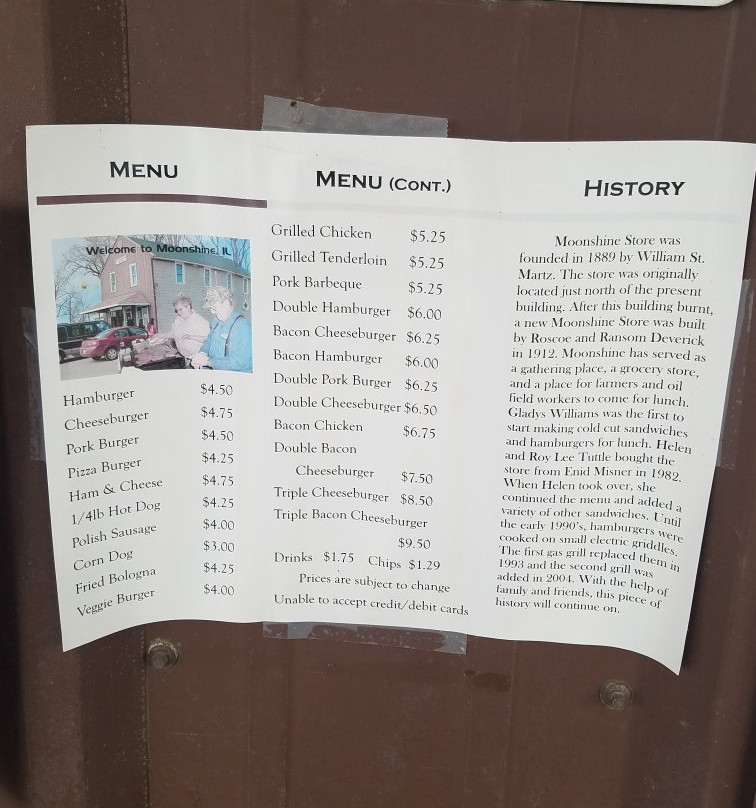 MENU
Welcome to Moonshine, IL
Hamburger $4.50
Cheeseburger $4.75
Pork Burger $4.50
Pizza Burger $4.25
Ham & Cheese $4.75
1/4lb Hot Dog $4.25
Polish Sausage $4.00
Corn Dog $3.00
Fried Bologna $4.25
Veggie Burger $4.00
MENU (CONT.)
Grilled Chicken $5.25
Grilled Tenderloin $5.25
Pork Barbeque $5.25
Double Hamburger $6.00
Bacon Cheeseburger $6.25
Bacon Hamburger $6.00
Double Pork Burger $6.25
Double Cheeseburger $6.50
Bacon Chicken $6.75
Double Bacon
Cheeseburger $7.50
Triple Cheeseburger $8.50
Triple Bacon Cheeseburger
$9.50
Drinks $1.75 Chips $1.29
Prices are subject to change
Unable to accept credit/debit cards
HISTORY
Moonshine Store was
founded in 1889 by William St.
Martz. The store was originally
located just north of the present
building. After this building burnt,
a new Moonshine Store was built
by Roscoe and Ransom Deverick
in 1912. Moonshine has served as
a gathering place, a grocery store,
and a place for farmers and oil
field workers to come for lunch.
Gladys Williams was the first to
start making cold cut sandwiches
and hamburgers for lunch. Helen
and Roy Lee Tuttle bought the
store from Enid Misner in 1982.
When Helen took over, she
continued the menu and added a
variety of other sandwiches. Until
the early 1990's, hamburgers were
cooked on small electric griddles.
The first gas grill replaced them in
1993 and the second grill was
added in 2004. With the help of
family and friends, this piece of
history will continue on.